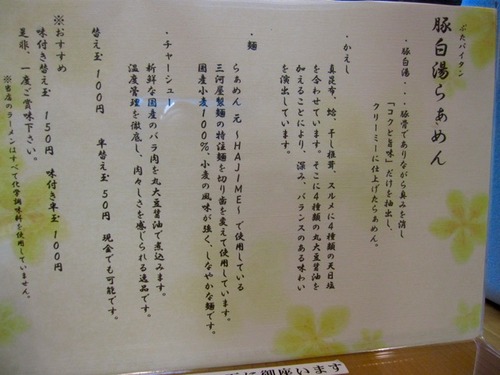 ぶたパイタン
豚白湯らぁめん
・豚白湯・・・豚骨でありながら臭みを消し
「コクと旨味」だけを抽出し、
クリーミーに仕上げたらぁめん。
・かえし
真昆布、蛤、干し椎茸、スルメに4種類の天日塩
を合わせています。そこに4種類の丸大豆醤油を
加えることにより、深み、バランスのある味わい
を演出しています。
・麺
らぁめん 元 ～HAJIME～ で使用している
三河屋製麺の特注麺を切り歯を変えて使用しています。
国産小麦100%。小麦の風味が強く、しなやかな麺です。
・チャーシュー
新鮮な国産のバラ肉を丸大豆醤油で煮込みます。
温度管理を徹底し、肉々しさを感じられる逸品です。
替え玉 100円 半替え玉 50円 現金でも可能です。
※おすすめ
味付き替え玉 150円 味付き半玉 100円
是非、一度ご賞味下さい。
※当店のラーメンはすべて化学調味料を使用していません。
に御座います